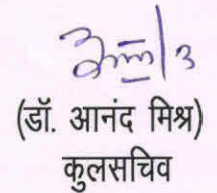 (डॉ. आनंद मिश्र)
कुलसचिव